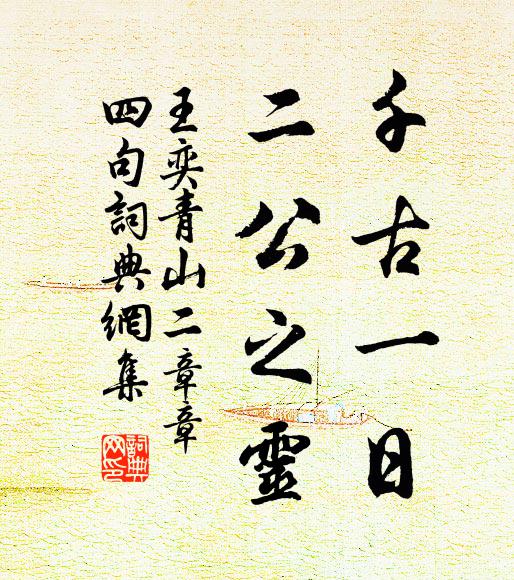 千古一日
二公之靈
王奕青山二章章
四句詞典網集
詞典网印